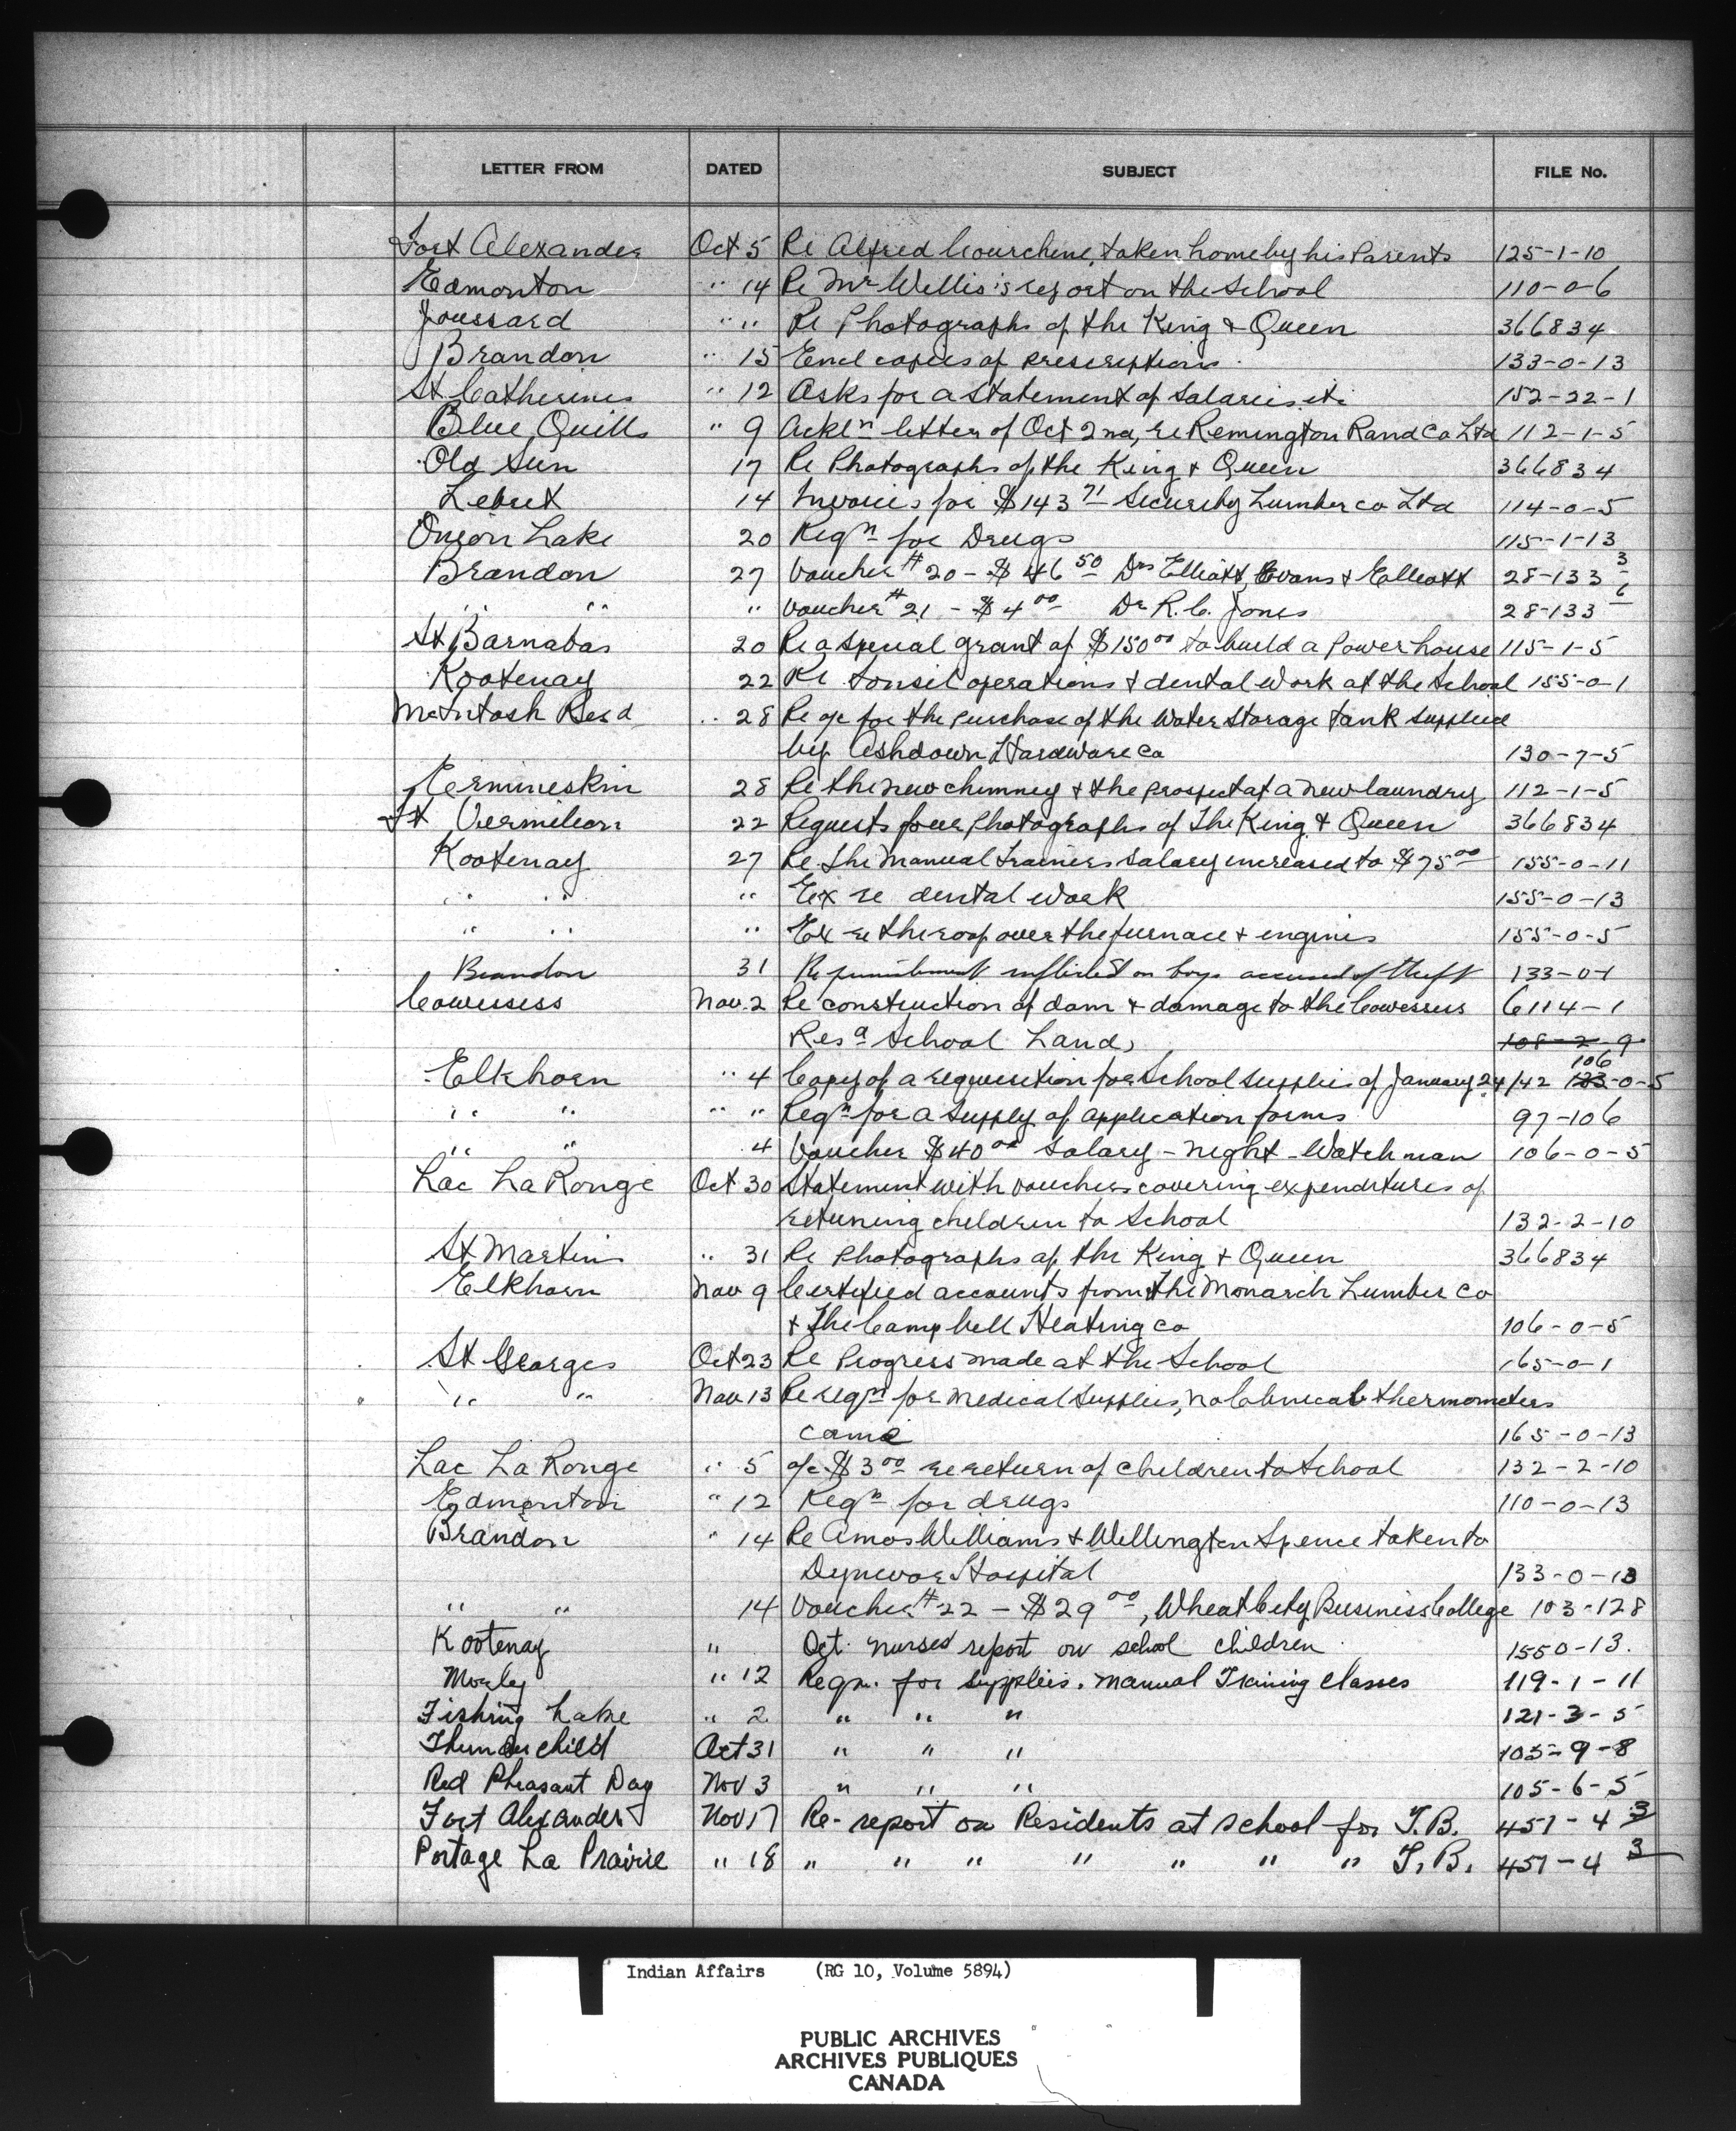 LETTER FROM DATED SUBJECT FILE No.
Fort Alexander Oct 5 Re Alfred Courchene, taken home by his Parents 125-1-10
Edmonton " 14 Re Mr Willis's report on the School 110-0-6
Joussard " " Re Photographs of the King & Queen 366834
Brandon " 15 Encl copies of prescriptions. 133-0-13
St Catherines " 12 Asks for a Statement of Salaries etc 152-22-1
Blue Quills " 9 Ackln letter of Oct 2nd, re Remington Rand Co Ltd 112-1-5
Old Sun 17 Re Photographs of the King & Queen 366834
Lebret 14 Invoices for $143 71 Security Lumber co Ltd 114-0-5
Onion Lake 20 Reqn for Drugs 115-1-13
Brandon 27 Voucher #20 - $46 50 Drs Elliott, Evans & Elliott 28-133 3
" " " Voucher #21 - $4 00 Dr R.C. Jones 28-133 6
St Barnabas 20 Re a special grant of $150 00 to build a Power house 115-1-5
Kootenay 22 Re tonsil operations & dental work at the School 155-0-1
McIntosh Resd " 28 Re a/c for the purchase of the Water Storage tank supplied
by Ashdown Hardware Co 130-7-5
Ermineskin 28 Re the new chimney & the prospect of a new laundry 112-1-5
Ft Vermilion 22 Requests four Photographs of The King & Queen 366834
Kootenay 27 Re the Manual trainers Salary increased to $75 00 155-0-11
" " " Ex re dental work 155-0-13
" " " Ex re the roof over the furnace & engines 155-0-5
Brandon 31 Re punishment inflicted on boys accused of theft 133-0-1
Cowessess Nov. 2 Re construction of dam & damage to the Cowessess 6114-1
Resa School Land, 108-2-9
106
Elkhorn " 4 Copy of a requisition for School Supplies of January 24/42 133-0-5
" " " " Reqn for a supply of application forms 97-106
" " 4 Voucher $40 00 Salary - Night - Watchman 106-0-5
Lac La Ronge Oct 30 Statement with vouchers covering expenditures of
returning children to School 132-2-10
St Martins " 31 Re Photographs of the King & Queen 366834
Elkhorn Nov 9 Certified accounts from the Monarch Lumber Co
& The Campbell Heating Co 106-0-5
St Georges Oct 23 Re Progress made at the School 165-0-1
" " Nov 13 Re reqn for Medical Supplies, no Clinical thermometers
came 165-0-13
Lac La Ronge " 5 a/c $3 00 re return of children to School 132-2-10
Edmonton " 12 Reqn for drugs 110-0-13
Brandon " 14 Re Amos Williams & Wellington Spence taken to
Dynevor Hospital 133-0-13
" " 14 Voucher #22 - $29 00, Wheat City Business College 103-128
Kootenay " Oct. nurses report on school children 1550-13.
Morley " 12 Reqn. for supplies. manual Training classes 119-1-11
Fishing Lake " 2 " " " 121-3-5
Thunderchild Oct 31 " " " 105-9-8
Red Pheasant Day Nov 3 " " " 105-6-5
Fort Alexander Nov 17 Re- report on Residents at school for T.B. 451-4 3
Portage La Prairie " 18 " " " " " " " T.B. 451-4 3
Indian Affairs (RG 10, Volume 5894)
PUBLIC ARCHIVES
ARCHIVES PUBLIQUES
CANADA